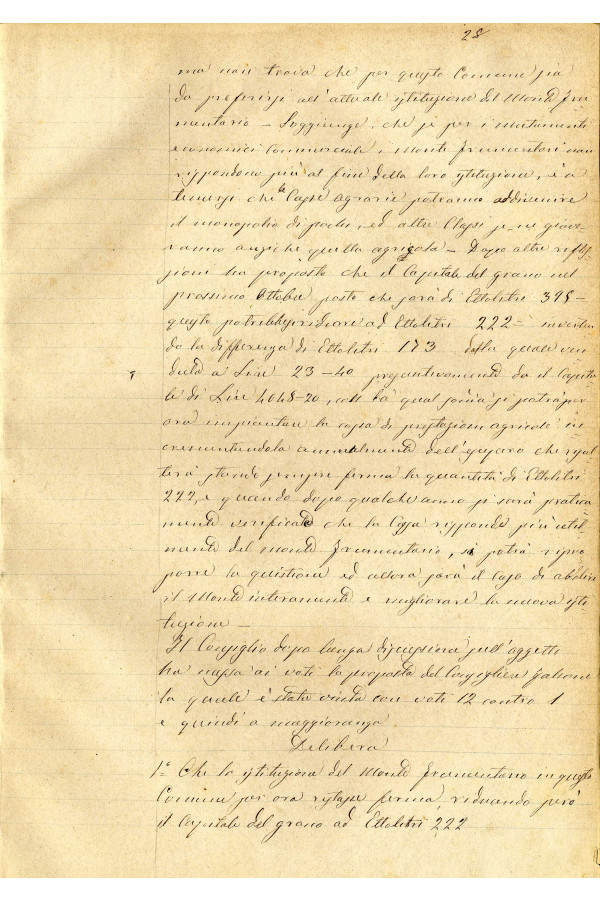 28
ma non trova che per questo Comune sia
da preferirsi all'attuale istituzione del Monte Fru=
mentario – Soggiunge, che se per i mutamenti
economici Commerciali i Monti Frumentari non
rispondono più al fine della loro istituzione, è a
temersi che le Casse Agrarie potranno addivenire
il monopolio di pochi, ed altre Classi se ne giove=
ranno anziché quella agricola – Dopo altre rifles=
sioni ha proposto che il Capitale del grano nel
prossimo Ottobre posto che sarà di Ettolitri 395 –
questo potrebbesi ridurre ad Ettolitri 222 = inverten
do la differenza di Ettolitri 173 della quale ven
duta a Lire 23–40 presuntivamente da il Capita
le di Lire 4048–20, colla qual somma si potrà per
ora impiantare la cassa di prestazioni agricole in
crescentandola annualmente dell'usuraro che risul
terà stando sempre ferma la quantità di Ettolitri
222, e quando dopo qualche anno si sarà pratica
mente verificato che la Cassa risponde più util
mente del Monte Frumentario, si potrà ripro
porre la quistione ed allora sarà il Caso di abolire
il Monte interamente e migliorare la nuova isti=
tuzione –
Il Consiglio dopo lunga discussione sull'oggetto
ha messa ai voti la proposta del Consigliere
la quale è stata vinta con voti 12 contro 1
e quindi a maggioranza
Delibera
1° Che la istituzione del Monte Frumentario in questo
Comune per ora restasse ferma, riducendo però
il Capitale del grano ad Ettolitri 222